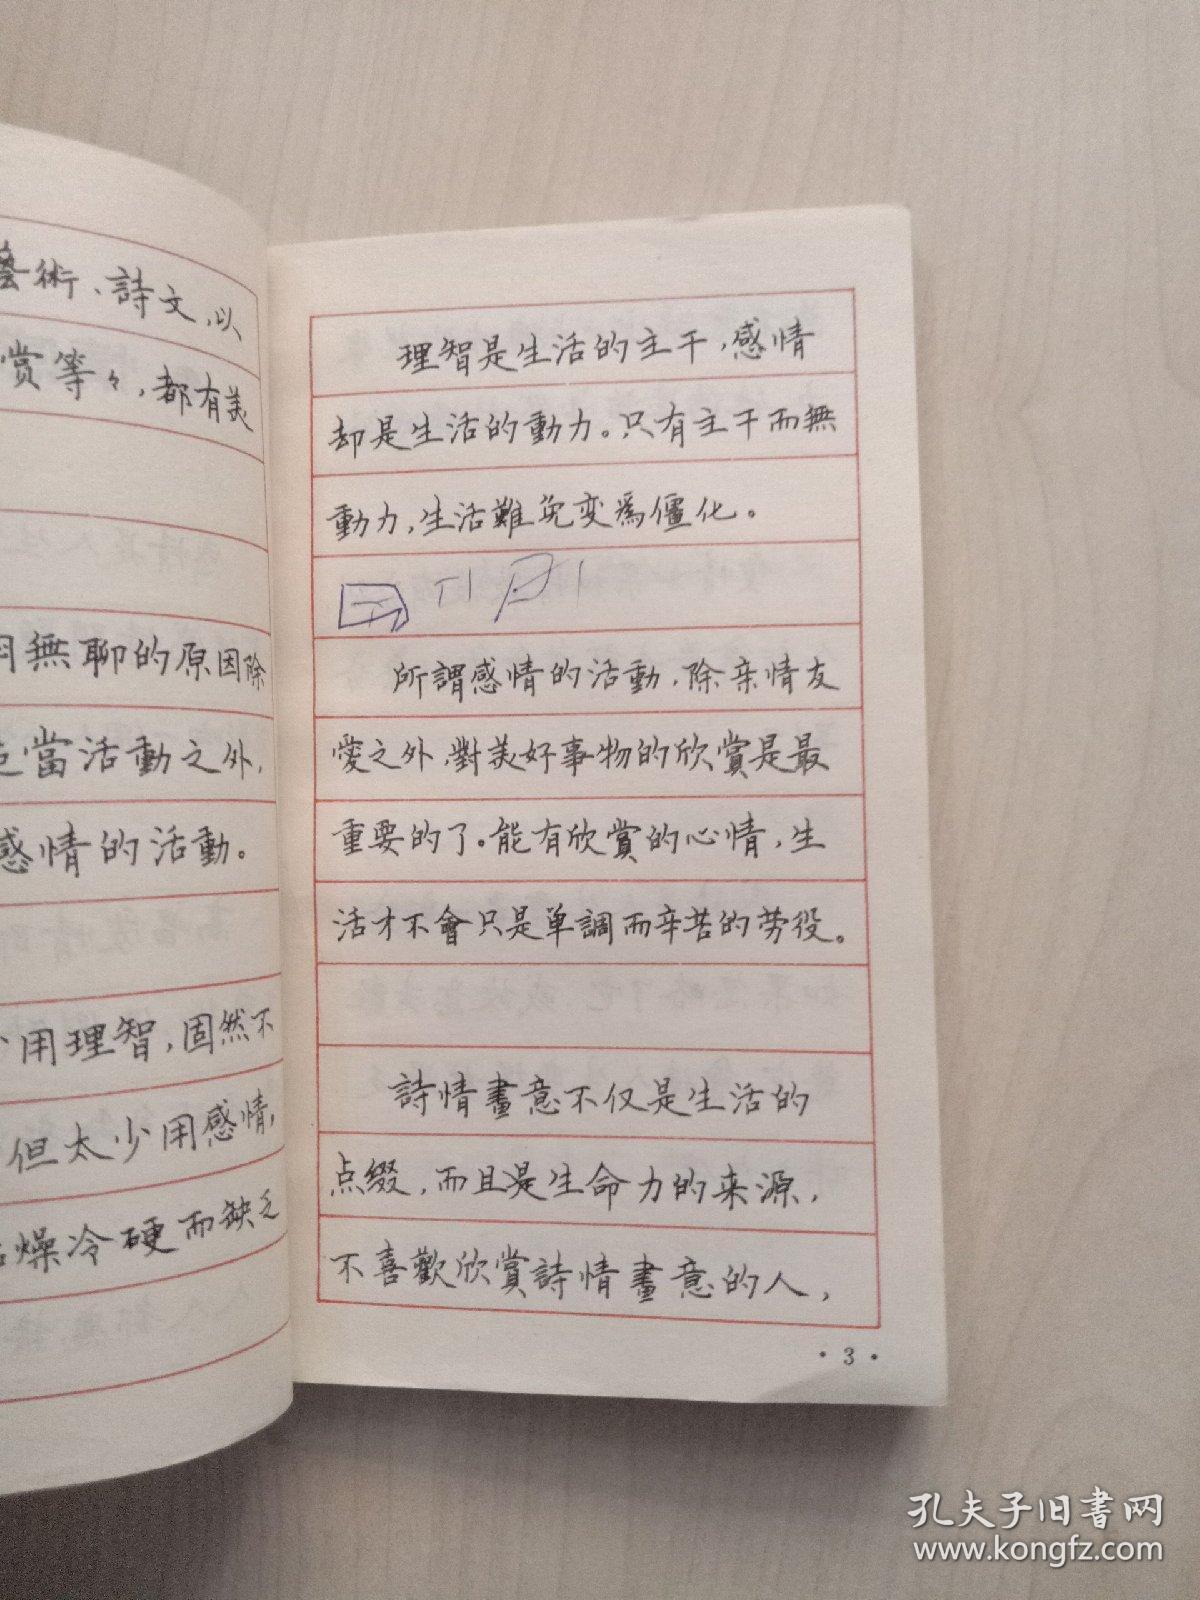 藝術、詩文,以
賞等々,都有美
無聊的原因除
當活動之外,
感情的活動。
用理智,固然不
但太少用感情,
燥冷硬而缺乏
理智是生活的主干,感情
却是生活的動力。只有主干而無
動力,生活難免变爲僵化。
所謂感情的活動,除亲情友
愛之外,對美好事物的欣賞是最
重要的了。能有欣賞的心情,生
活才不會只是单調而辛苦的劳役。
詩情畫意不仅是生活的
点綴,而且是生命力的来源,
不喜歡欣賞詩情畫意的人,
·3·
孔夫子旧书网
www.kongfz.com